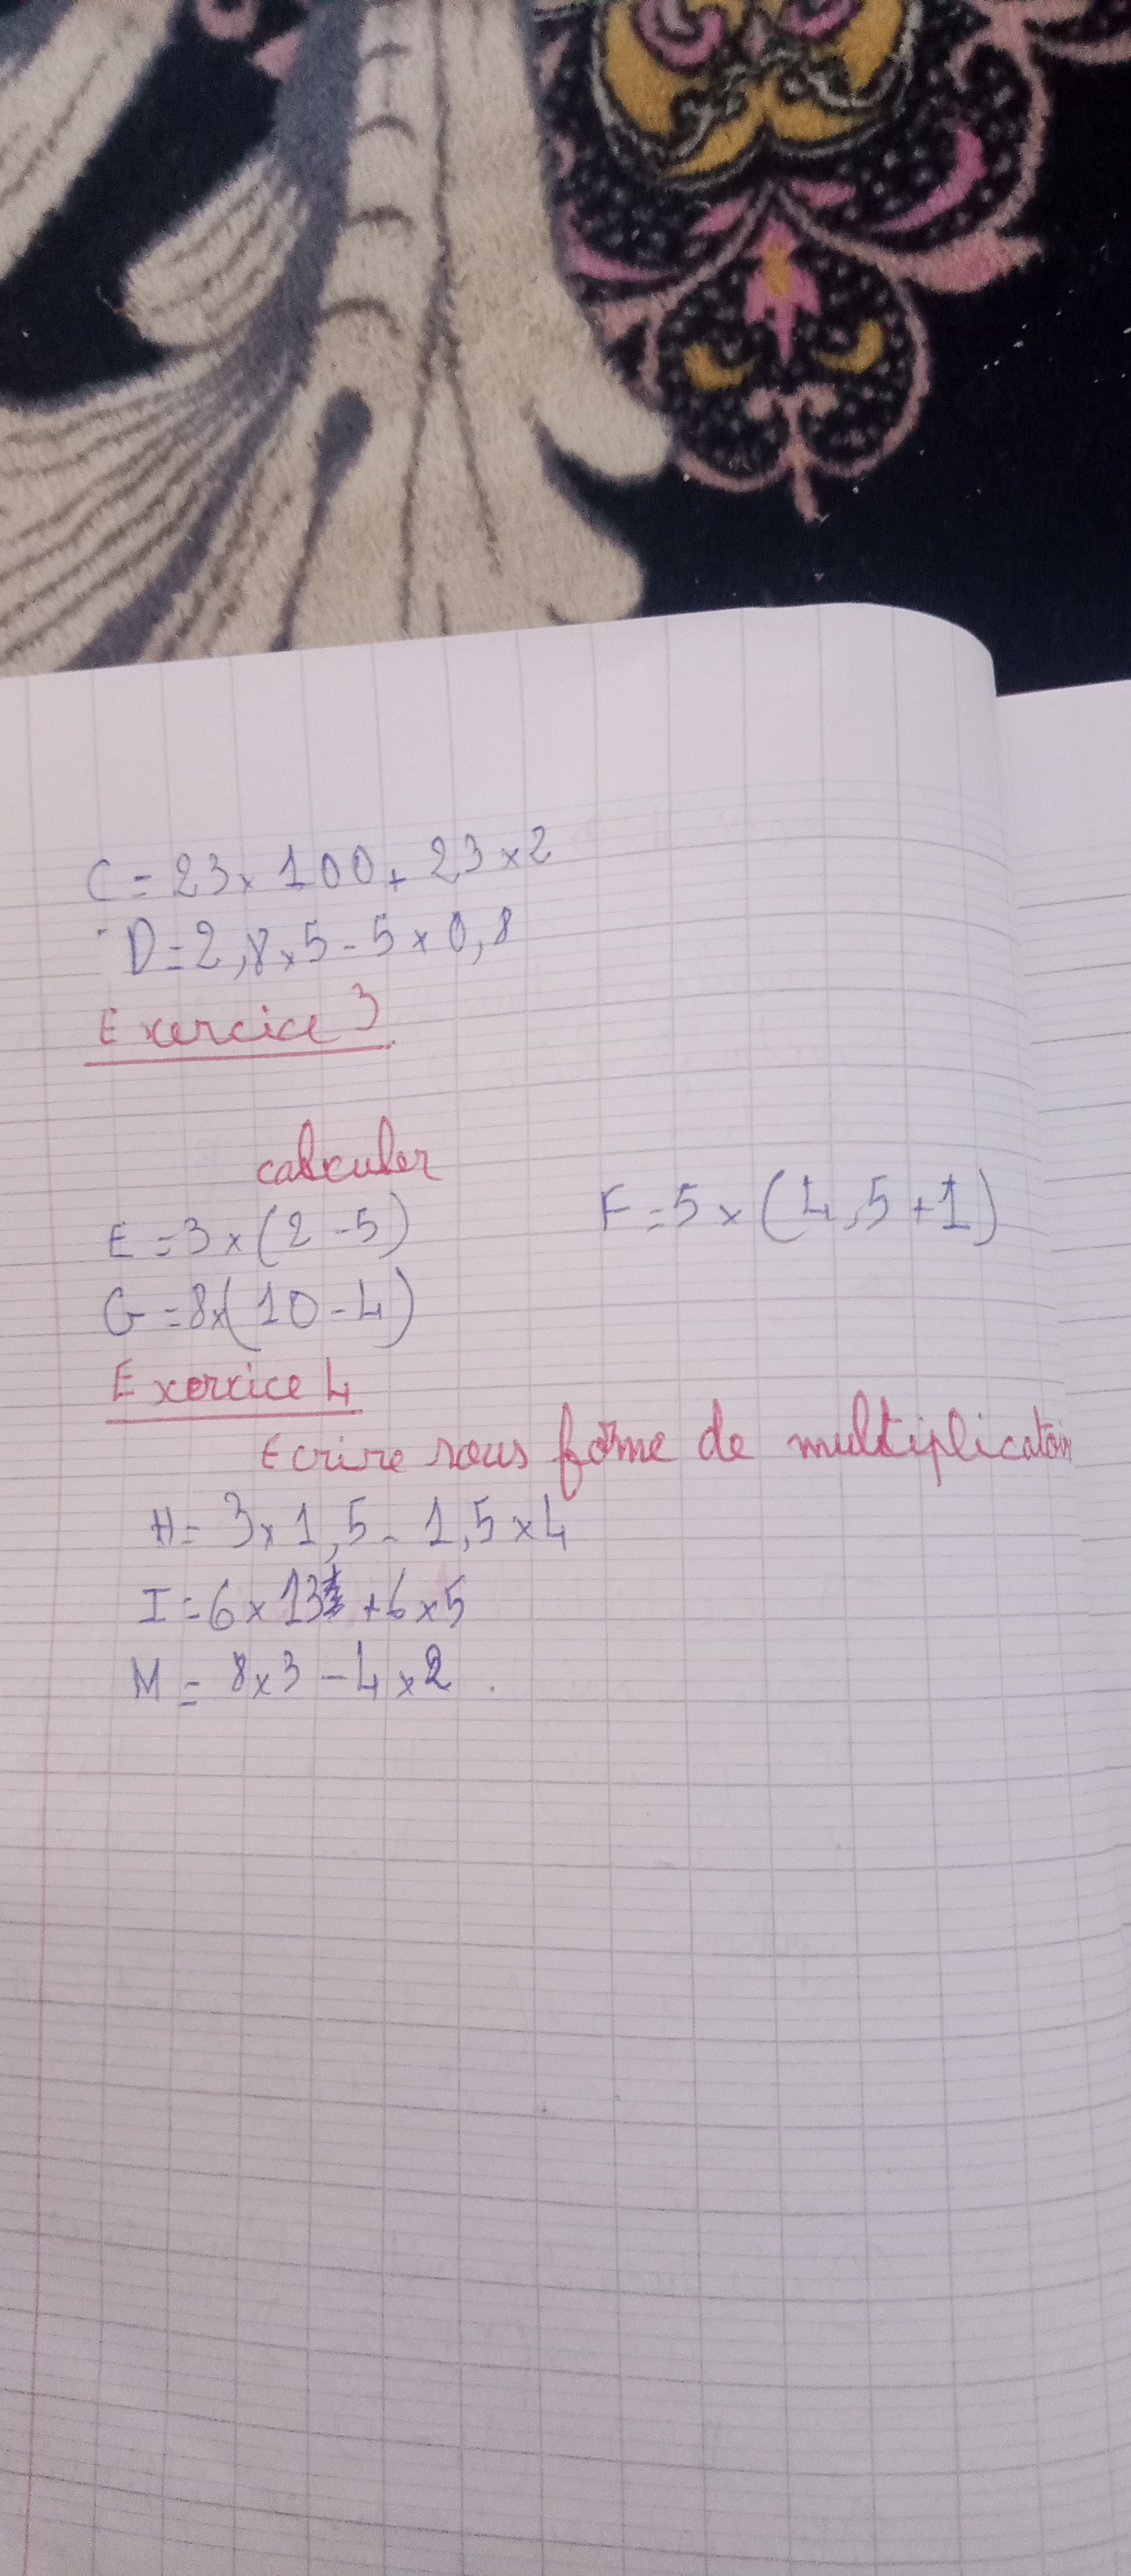 C = 23 x 100 + 23 x 2
D = 2,8 x 5 - 5 x 0,8
Exercice 3
calculer
E = 3 x (2 - 5) F = 5 x (4,5 + 1)
G = 8x(10 - 4)
Exercice 4
Ecrire sous forme de multiplication
H = 3 x 1,5 - 1,5 x 4
I = 6 x 13 + 6 x 5
M = 8 x 3 - 4 x 2 .